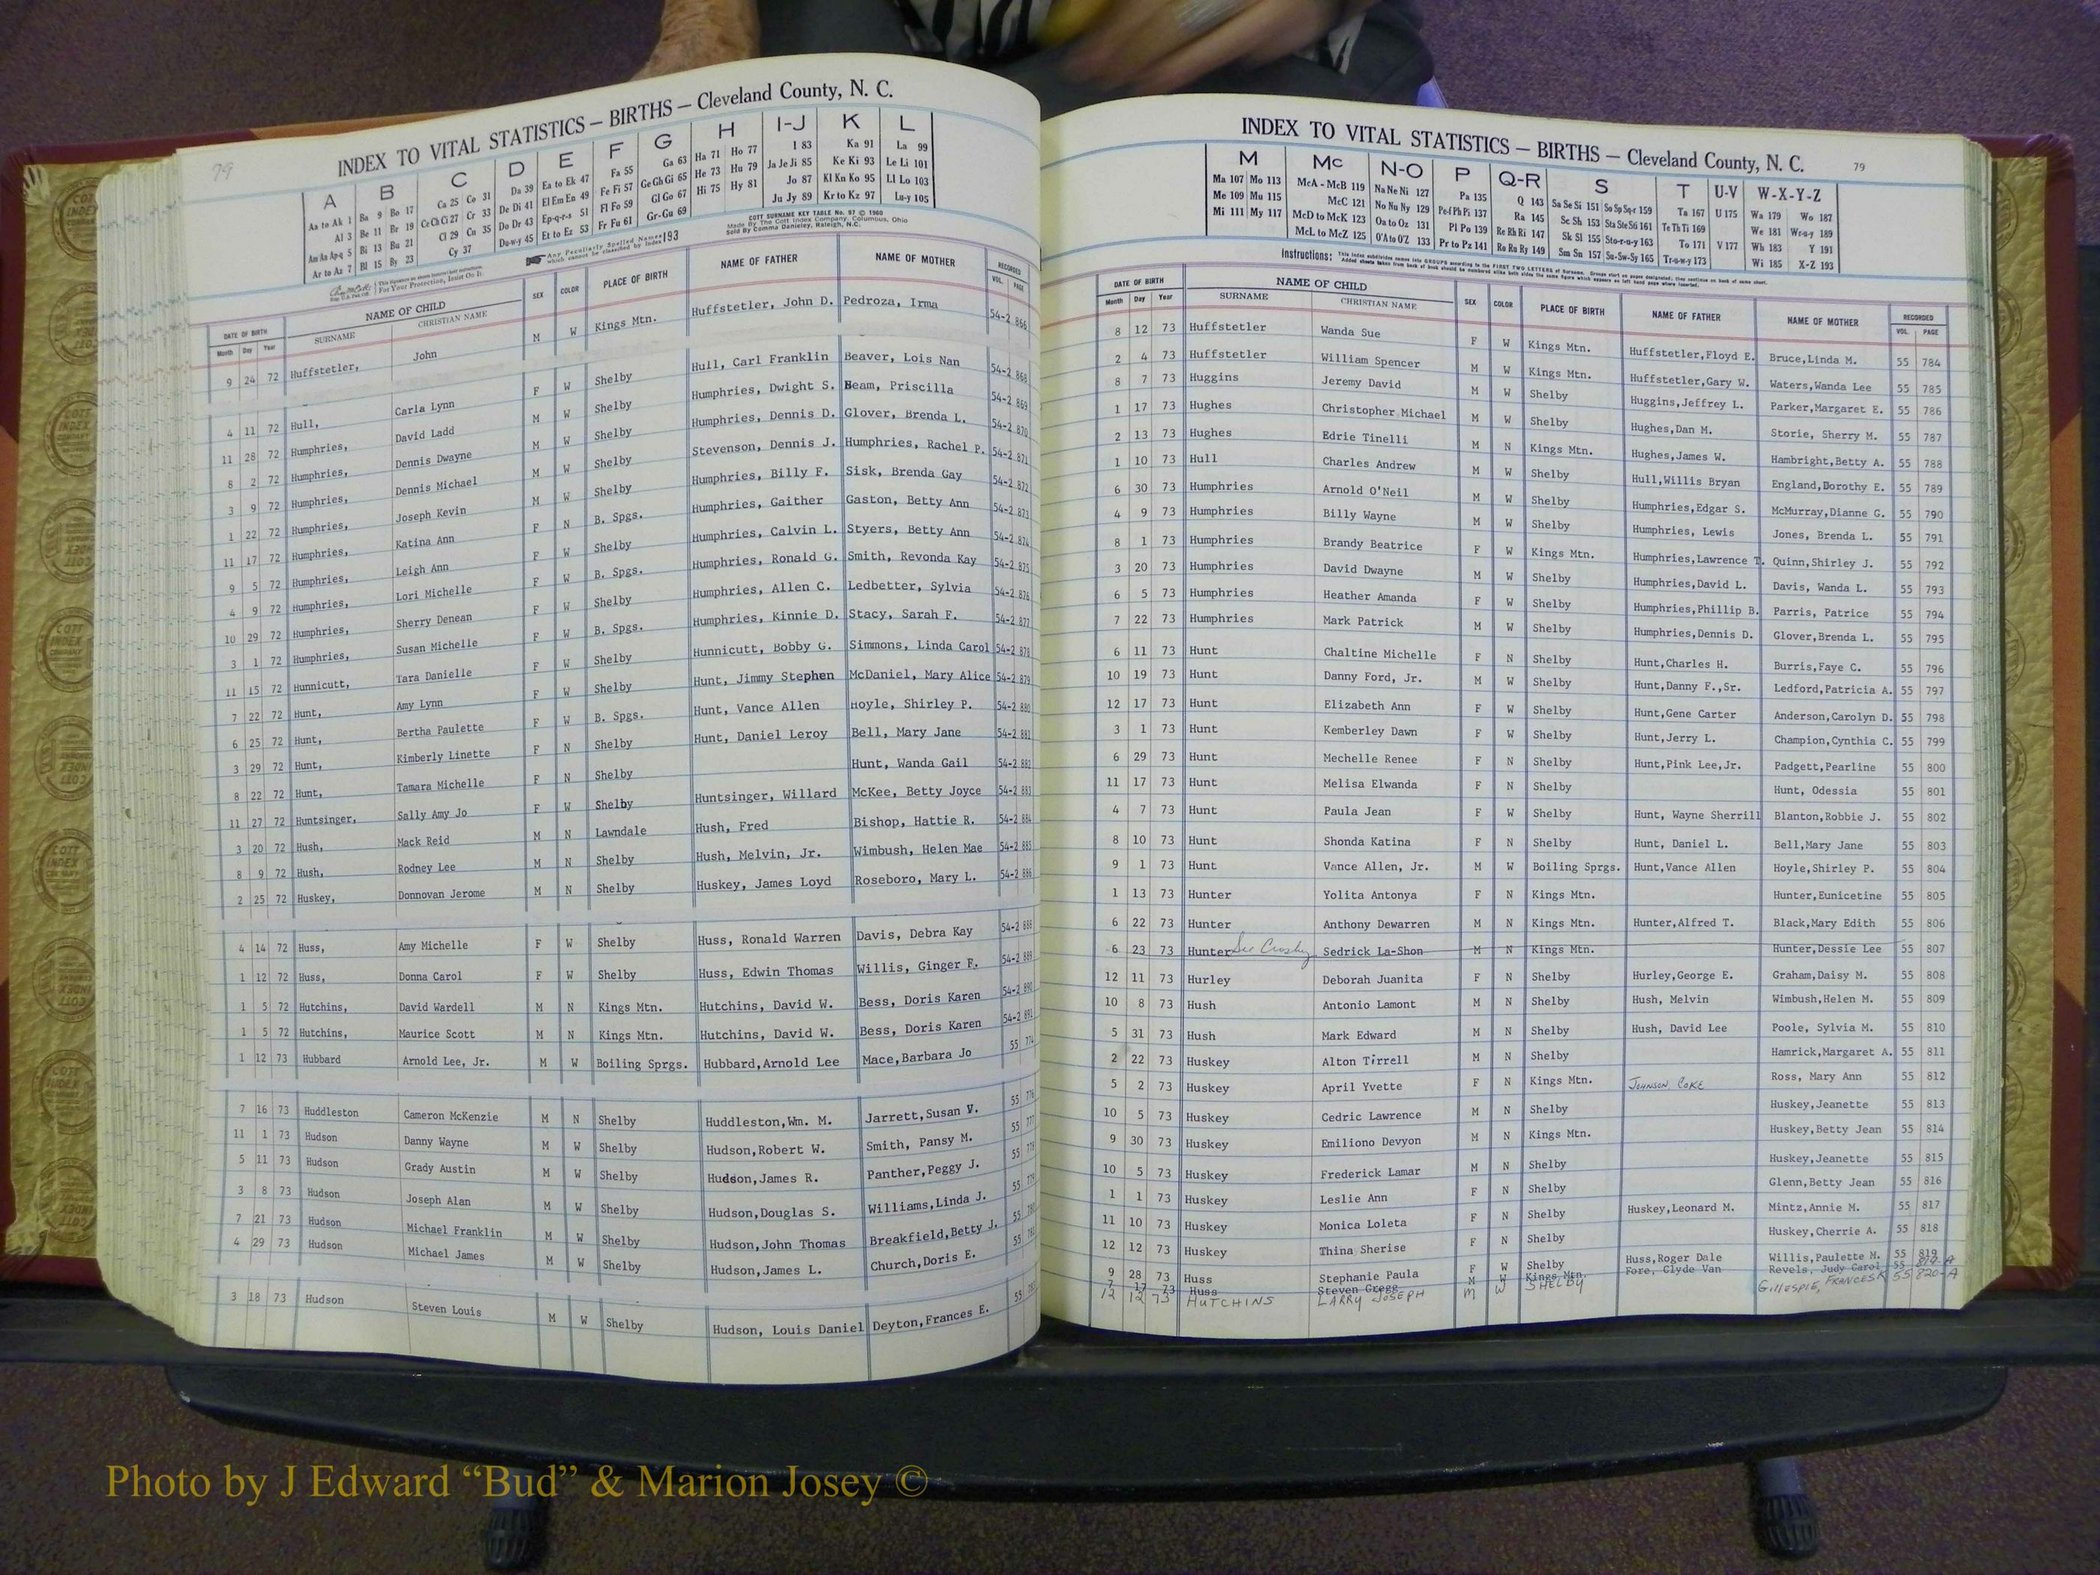 79
INDEX TO VITAL STATISTICS — BIRTHS — Cleveland County, N. C.
A B C D E F G H I-J K L
Aa to Ak 1 Ba 9 Bo 17 Ca 25 Co 31 Da 39 Ea to Ek 47 Fa 55 Ga 63 Ha 71 Ho 77 I 83 Ka 91 La 99
Al 3 Be 11 Br 19 Ce Ch Ci 27 Cr 33 De Di 41 El Em En 49 Fe Fi 57 Ge Gh Gi 65 He 73 Hu 79 Ja Je Ji 85 Ke Ki 93 Le Li 101
Am An Ap-q 5 Bi 13 Bu 21 Cl 29 Cu 35 Do Dr 43 Ep-q-r-s 51 Fl Fo 59 Gl Go 67 Hi 75 Hy 81 Jo 87 Kl Kn Ko 95 Ll Lo 103
Ar to Az 7 Bl 15 By 23 Cy 37 Du-w-y 45 Et to Ez 53 Fr Fu 61 Gr-Gu 69 Ju Jy 89 Kr to Kz 97 Lu-y 105
For Your Protection, Insist On It
Any Peculiarly Spelled Names which cannot be classified by index 193
COTT SURNAME KEY TABLE No. 97 © 1960
Made By The Cott Index Company, Columbus, Ohio
Sold By Comma Danieley, Raleigh, N.C.
DATE OF BIRTH NAME OF CHILD SEX COLOR PLACE OF BIRTH NAME OF FATHER NAME OF MOTHER RECORDED
Month Day Year SURNAME CHRISTIAN NAME VOL. PAGE
9 24 72 Huffstetler, John M W Kings Mtn. Huffstetler, John D. Pedroza, Irma 54-2 866
4 11 72 Hull, Carla Lynn F W Shelby Hull, Carl Franklin Beaver, Lois Nan 54-2 868
11 28 72 Humphries, David Ladd M W Shelby Humphries, Dwight S. Beam, Priscilla 54-2 869
8 2 72 Humphries, Dennis Dwayne M W Shelby Humphries, Dennis D. Glover, Brenda L. 54-2 870
3 9 72 Humphries, Dennis Michael M W Shelby Stevenson, Dennis J. Humphries, Rachel P. 54-2 871
1 22 72 Humphries, Joseph Kevin M W Shelby Humphries, Billy F. Sisk, Brenda Gay 54-2 872
11 17 72 Humphries, Katina Ann F N B. Spgs. Humphries, Gaither Gaston, Betty Ann 54-2 873
9 5 72 Humphries, Leigh Ann F W Shelby Humphries, Calvin L. Styers, Betty Ann 54-2 874
4 9 72 Humphries, Lori Michelle F W B. Spgs. Humphries, Ronald G. Smith, Revonda Kay 54-2 875
10 29 72 Humphries, Sherry Denean F W Shelby Humphries, Allen C. Ledbetter, Sylvia 54-2 876
3 1 72 Humphries, Susan Michelle F W B. Spgs. Humphries, Kinnie D. Stacy, Sarah F. 54-2 877
11 15 72 Hunnicutt, Tara Danielle F W Shelby Hunnicutt, Bobby G. Simmons, Linda Carol 54-2 878
7 22 72 Hunt, Amy Lynn F W Shelby Hunt, Jimmy Stephen McDaniel, Mary Alice 54-2 879
6 25 72 Hunt, Bertha Paulette F W B. Spgs. Hunt, Vance Allen Hoyle, Shirley P. 54-2 880
3 29 72 Hunt, Kimberly Linette F N Shelby Hunt, Daniel Leroy Bell, Mary Jane 54-2 881
8 22 72 Hunt, Tamara Michelle F N Shelby Hunt, Wanda Gail 54-2 882
11 27 72 Huntsinger, Sally Amy Jo F W Shelby Huntsinger, Willard McKee, Betty Joyce 54-2 883
3 20 72 Hush, Mack Reid M N Lawndale Hush, Fred Bishop, Hattie R. 54-2 884
8 9 72 Hush, Rodney Lee M N Shelby Hush, Melvin, Jr. Wimbush, Helen Mae 54-2 885
2 25 72 Huskey, Donnovan Jerome M N Shelby Huskey, James Loyd Roseboro, Mary L. 54-2 886
4 14 72 Huss, Amy Michelle F W Shelby Huss, Ronald Warren Davis, Debra Kay 54-2 888
1 12 72 Huss, Donna Carol F W Shelby Huss, Edwin Thomas Willis, Ginger F. 54-2 889
1 5 72 Hutchins, David Wardell M N Kings Mtn. Hutchins, David W. Bess, Doris Karen 54-2 890
1 5 72 Hutchins, Maurice Scott M N Kings Mtn. Hutchins, David W. Bess, Doris Karen 54-2 891
1 12 73 Hubbard Arnold Lee, Jr. M W Boiling Sprgs. Hubbard,Arnold Lee Mace,Barbara Jo 55 774
7 16 73 Huddleston Cameron McKenzie M N Shelby Huddleston,Wm. M. Jarrett,Susan V. 55 776
11 1 73 Hudson Danny Wayne M W Shelby Hudson,Robert W. Smith, Pansy M. 55 777
5 11 73 Hudson Grady Austin M W Shelby Hudson,James R. Panther,Peggy J. 55 778
3 8 73 Hudson Joseph Alan M W Shelby Hudson,Douglas S. Williams,Linda J. 55 779
7 21 73 Hudson Michael Franklin M W Shelby Hudson,John Thomas Breakfield,Betty J. 55 780
4 29 73 Hudson Michael James M W Shelby Hudson,James L. Church,Doris E. 55
3 18 73 Hudson Steven Louis M W Shelby Hudson, Louis Daniel Deyton,Frances E. 55
INDEX TO VITAL STATISTICS — BIRTHS — Cleveland County, N. C. 79
M Mc N-O P Q-R S T U-V W-X-Y-Z
Ma 107 Mo 113 McA - McB 119 Na Ne Ni 127 Pa 135 Q 143 Sa Se Si 151 So Sp Sq-r 159 Ta 167 U 175 Wa 179 Wo 187
Me 109 Mu 115 McC 121 No Nu Ny 129 Pe-f Ph Pi 137 Ra 145 Sc Sh 153 Sta Ste Sti 161 Te Th Ti 169 We 181 Wr-u-y 189
Mi 111 My 117 McD to McK 123 Oa to Oz 131 Pl Po 139 Re Rh Ri 147 Sk Sl 155 Sto-r-u-y 163 To 171 V 177 Wh 183 Y 191
McL to McZ 125 O'A to O'Z 133 Pr to Pz 141 Ro Ru Ry 149 Sm Sn 157 Su-Sw-Sy 165 Tr-u-w-y 173 Wi 185 X-Z 193
Instructions: This index subdivides names into GROUPS according to the FIRST TWO LETTERS of Surname. Groups start on pages designated; then continue on back of same sheet.
Added sheets taken from back of book should be numbered alike both sides the same figure which appears on left hand page where inserted.
DATE OF BIRTH NAME OF CHILD SEX COLOR PLACE OF BIRTH NAME OF FATHER NAME OF MOTHER RECORDED
Month Day Year SURNAME CHRISTIAN NAME VOL. PAGE
8 12 73 Huffstetler Wanda Sue F W Kings Mtn. Huffstetler,Floyd E. Bruce,Linda M. 55 784
2 4 73 Huffstetler William Spencer M W Kings Mtn. Huffstetler,Gary W. Waters,Wanda Lee 55 785
8 7 73 Huggins Jeremy David M W Shelby Huggins,Jeffrey L. Parker,Margaret E. 55 786
1 17 73 Hughes Christopher Michael M W Shelby Hughes,Dan M. Storie, Sherry M. 55 787
2 13 73 Hughes Edrie Tinelli M N Kings Mtn. Hughes,James W. Hambright,Betty A. 55 788
1 10 73 Hull Charles Andrew M W Shelby Hull,Willis Bryan England,Dorothy E. 55 789
6 30 73 Humphries Arnold O'Neil M W Shelby Humphries,Edgar S. McMurray,Dianne G. 55 790
4 9 73 Humphries Billy Wayne M W Shelby Humphries, Lewis Jones, Brenda L. 55 791
8 1 73 Humphries Brandy Beatrice F W Kings Mtn. Humphries,Lawrence T. Quinn,Shirley J. 55 792
3 20 73 Humphries David Dwayne M W Shelby Humphries,David L. Davis, Wanda L. 55 793
6 5 73 Humphries Heather Amanda F W Shelby Humphries,Phillip B. Parris, Patrice 55 794
7 22 73 Humphries Mark Patrick M W Shelby Humphries,Dennis D. Glover,Brenda L. 55 795
6 11 73 Hunt Chaltine Michelle F N Shelby Hunt,Charles H. Burris,Faye C. 55 796
10 19 73 Hunt Danny Ford, Jr. M W Shelby Hunt,Danny F.,Sr. Ledford,Patricia A. 55 797
12 17 73 Hunt Elizabeth Ann F W Shelby Hunt,Gene Carter Anderson,Carolyn D. 55 798
3 1 73 Hunt Kemberley Dawn F W Shelby Hunt,Jerry L. Champion,Cynthia C. 55 799
6 29 73 Hunt Mechelle Renee F N Shelby Hunt,Pink Lee,Jr. Padgett,Pearline 55 800
11 17 73 Hunt Melisa Elwanda F N Shelby Hunt, Odessia 55 801
4 7 73 Hunt Paula Jean F W Shelby Hunt, Wayne Sherrill Blanton,Robbie J. 55 802
8 10 73 Hunt Shonda Katina F N Shelby Hunt, Daniel L. Bell,Mary Jane 55 803
9 1 73 Hunt Vance Allen, Jr. M W Boiling Sprgs. Hunt,Vance Allen Hoyle,Shirley P. 55 804
1 13 73 Hunter Yolita Antonya F N Kings Mtn. Hunter,Eunicetine 55 805
6 22 73 Hunter Anthony Dewarren M N Kings Mtn. Hunter,Alfred T. Black,Mary Edith 55 806
6 23 73 Hunter See Crosby Sedrick La-Shon M N Kings Mtn. Hunter,Dessie Lee 55 807
12 11 73 Hurley Deborah Juanita F N Shelby Hurley,George E. Graham,Daisy M. 55 808
10 8 73 Hush Antonio Lamont M N Shelby Hush, Melvin Wimbush,Helen M. 55 809
5 31 73 Hush Mark Edward M N Shelby Hush, David Lee Poole, Sylvia M. 55 810
2 22 73 Huskey Alton Tirrell M N Shelby Hamrick,Margaret A. 55 811
5 2 73 Huskey April Yvette F N Kings Mtn. JOHNSON, COKE Ross, Mary Ann 55 812
10 5 73 Huskey Cedric Lawrence M N Shelby Huskey,Jeanette 55 813
9 30 73 Huskey Emiliono Devyon M N Kings Mtn. Huskey,Betty Jean 55 814
10 5 73 Huskey Frederick Lamar M N Shelby Huskey,Jeanette 55 815
1 1 73 Huskey Leslie Ann F N Shelby Glenn,Betty Jean 55 816
11 10 73 Huskey Monica Loleta F N Shelby Huskey,Leonard M. Mintz,Annie M. 55 817
12 12 73 Huskey Thina Sherise F N Shelby Huskey,Cherrie A. 55 818
9 28 73 Huss Stephanie Paula F W Shelby Huss,Roger Dale Willis,Paulette M. 55 819
7 17 73 Huss Steven Gregg M W Kings Mtn. Fore, Clyde Van Revels, Judy Carol 55 819-A
12 12 73 HUTCHINS LARRY JOSEPH M W SHELBY GILLESPIE, FRANCES K 55 820-A
Photo by J Edward “Bud” & Marion Josey ©